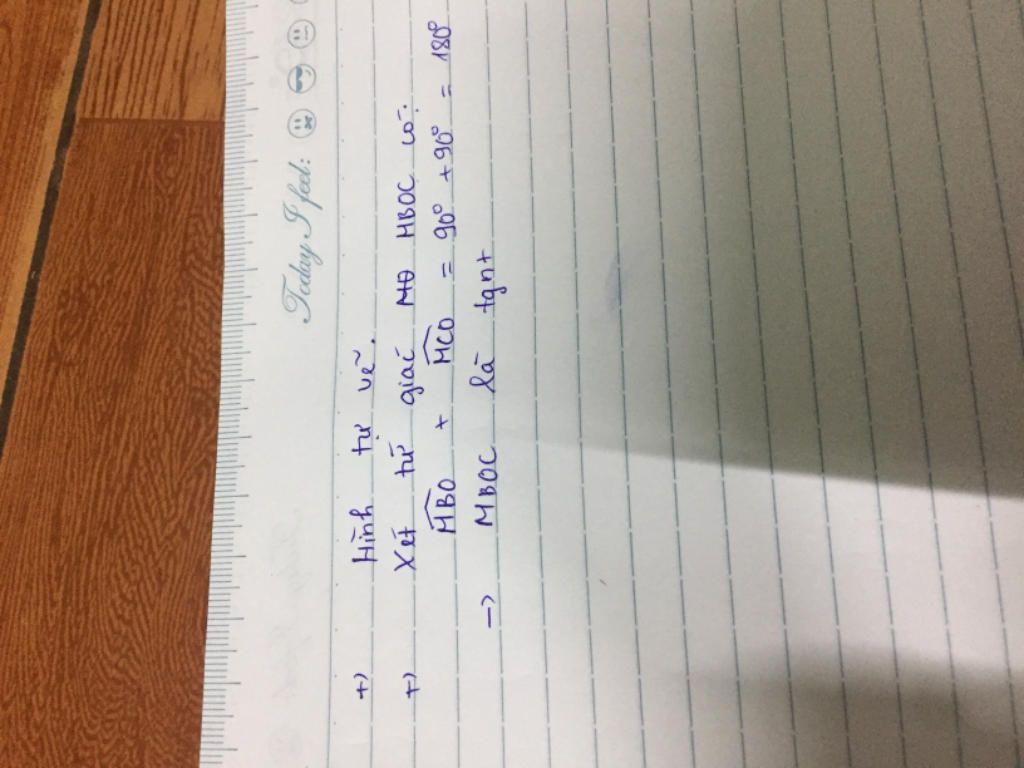 Today I feel:
+) Hình tự vẽ.
+) Xét tứ giác MBOC có:
MBO + MCO = 90° + 90° = 180°
→ MBOC là tgnt